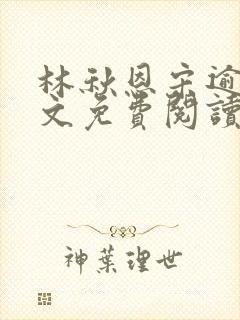 林秋恩宋逾
文免費閱讀
神葉理世